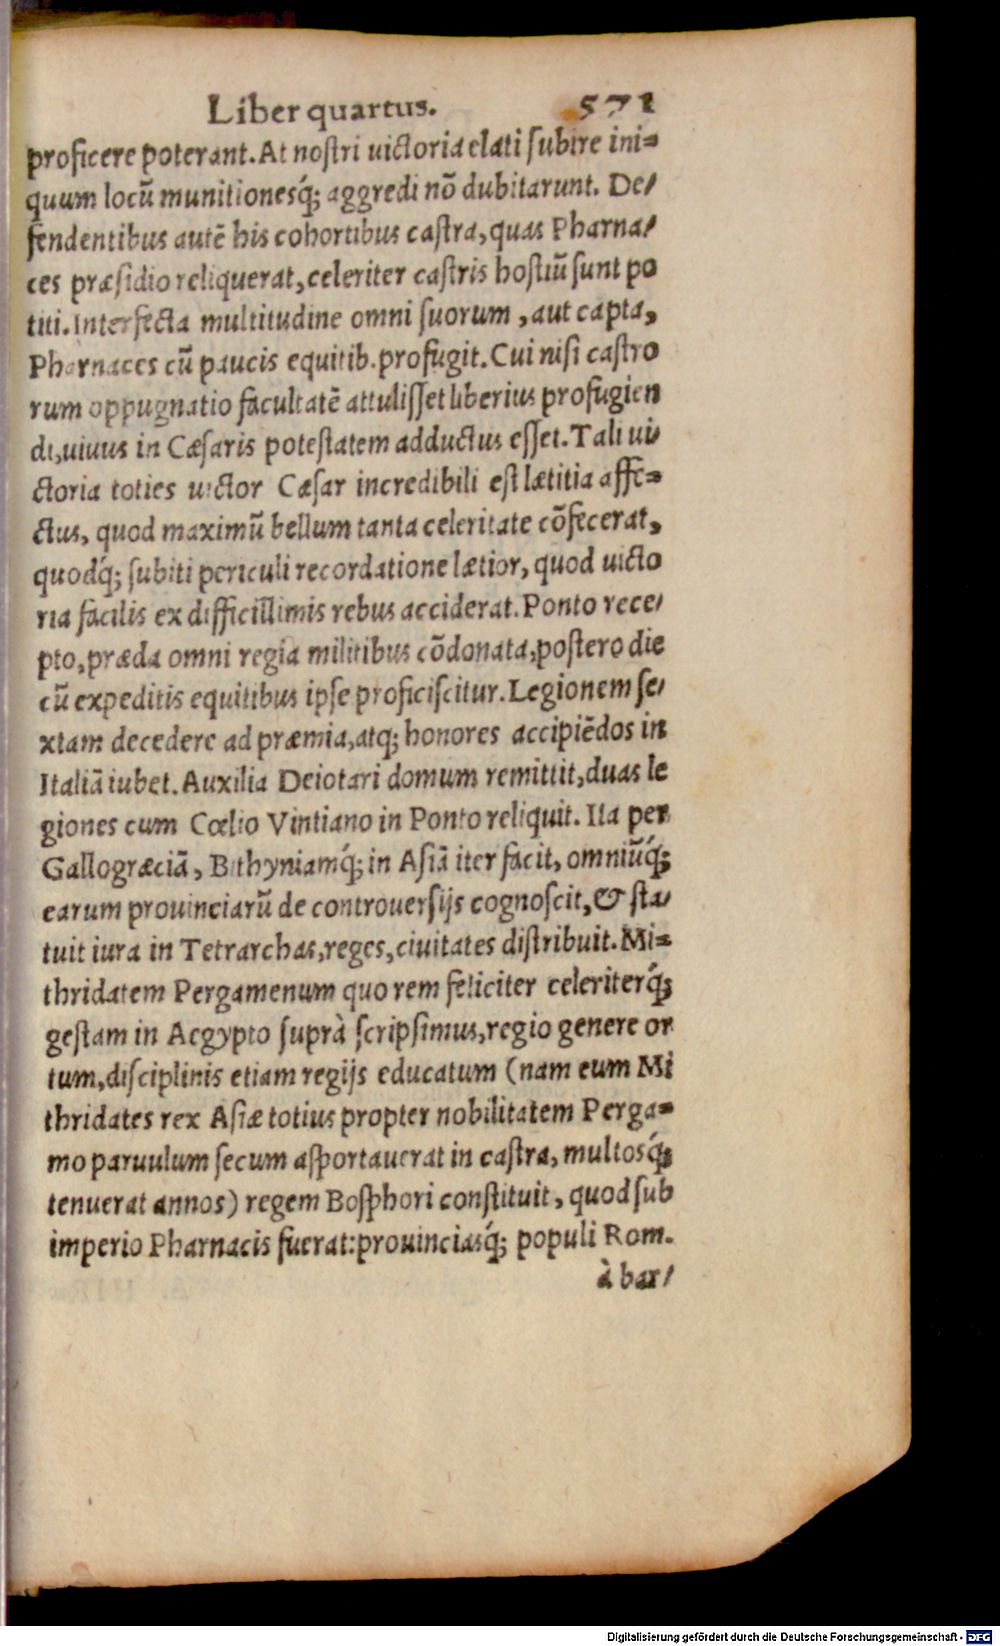 Liber quartus. 571
proficere poterant. At noſtri uictoria elati ſubire ini=
quum locũ munitionesq́; aggredi nõ dubitarunt. De/
fendentibus autẽ his cohortibus caſtra, quas Pharna/
ces præſidio reliquerat, celeriter caſtris hoſtiũ ſunt po
titi. Interfecta multitudine omni ſuorum, aut capta,
Pharnaces cũ paucis equitib. profugit. Cui niſi caſtro
rum oppugnatio facultatẽ attuliſſet liberius profugien
di, uiuus in Cæſaris poteſtatem adductus eſſet. Tali ui/
ctoria toties uictor Cæſar incredibili eſt lætitia affe=
ctus, quod maximũ bellum tanta celeritate cõfecerat,
quodq́; ſubiti periculi recordatione lætior, quod uicto
ria facilis ex difficillimis rebus acciderat. Ponto rece/
pto, præda omni regia militibus cõdonata, poſtero die
cũ expeditis equitibus ipſe proficiſcitur. Legionem ſe/
xtam decedere ad præmia, atq; honores accipiẽdos in
Italiã iubet. Auxilia Deiotari domum remittit, duas le
giones cum Cœlio Vintiano in Ponto reliquit. Ita per
Gallogræciã, Bithyniamq́; in Aſiã iter facit, omniũq́;
earum prouinciarũ de controuerſijs cognoſcit, & ſta/
tuit iura in Tetrarchas, reges, ciuitates diſtribuit. Mi=
thridatem Pergamenum quo rem feliciter celeriterq́;
geſtam in Aegypto ſuprà ſcripſimus, regio genere or
tum, diſciplinis etiam regijs educatum (nam eum Mi
thridates rex Aſiæ totius propter nobilitatem Perga=
mo paruulum ſecum aſportauerat in caſtra, multosq́;
tenuerat annos) regem Boſphori conſtituit, quod ſub
imperio Pharnacis fuerat: prouinciasq́; populi Rom.
à bar/
Digitalisierung gefördert durch die Deutsche Forschungsgemeinschaft - DFG